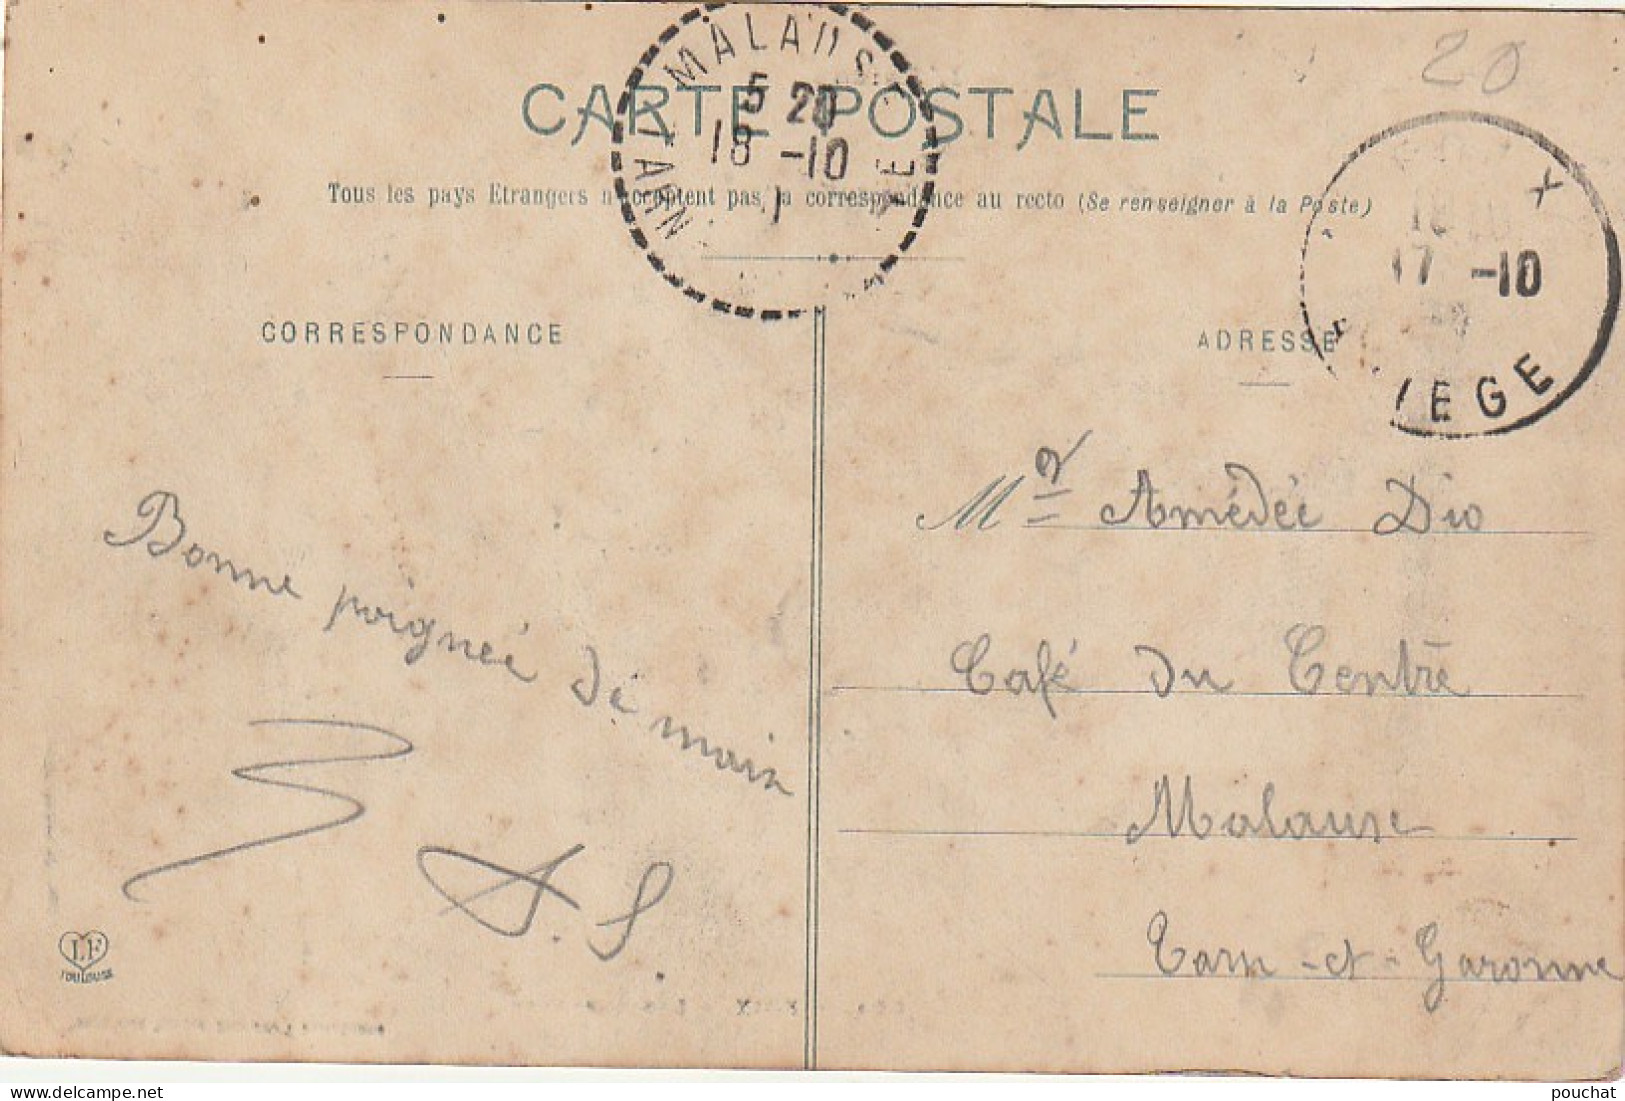 20
MALAUSE
5 20
18 -10
TARN
CARTE POSTALE
Tous les pays Etrangers n'acceptent pas la correspondance au recto (Se renseigner à la Poste)
X
17 -10
IEGE
CORRESPONDANCE
ADRESSE
Bonne poignée de main
A.S.
Mr Amédée Dio
Café du Centre
Malause
Tarn-et-Garonne
LF
TOULOUSE
www.delcampe.net
pouchat